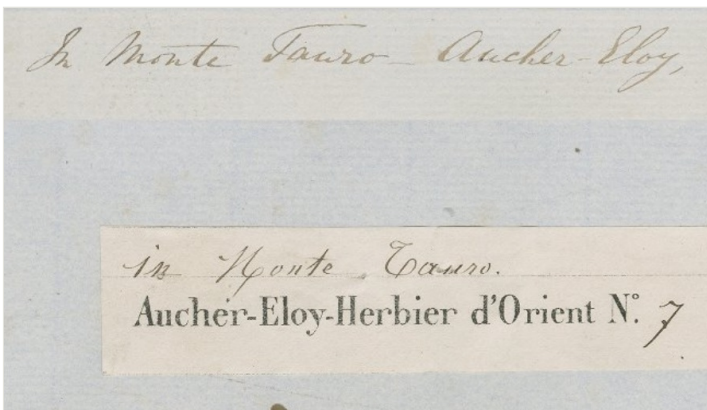 In Monte Tauro - Aucher-Eloy,
in Monte Tauro.
Aucher-Eloy-Herbier d'Orient N°. 7